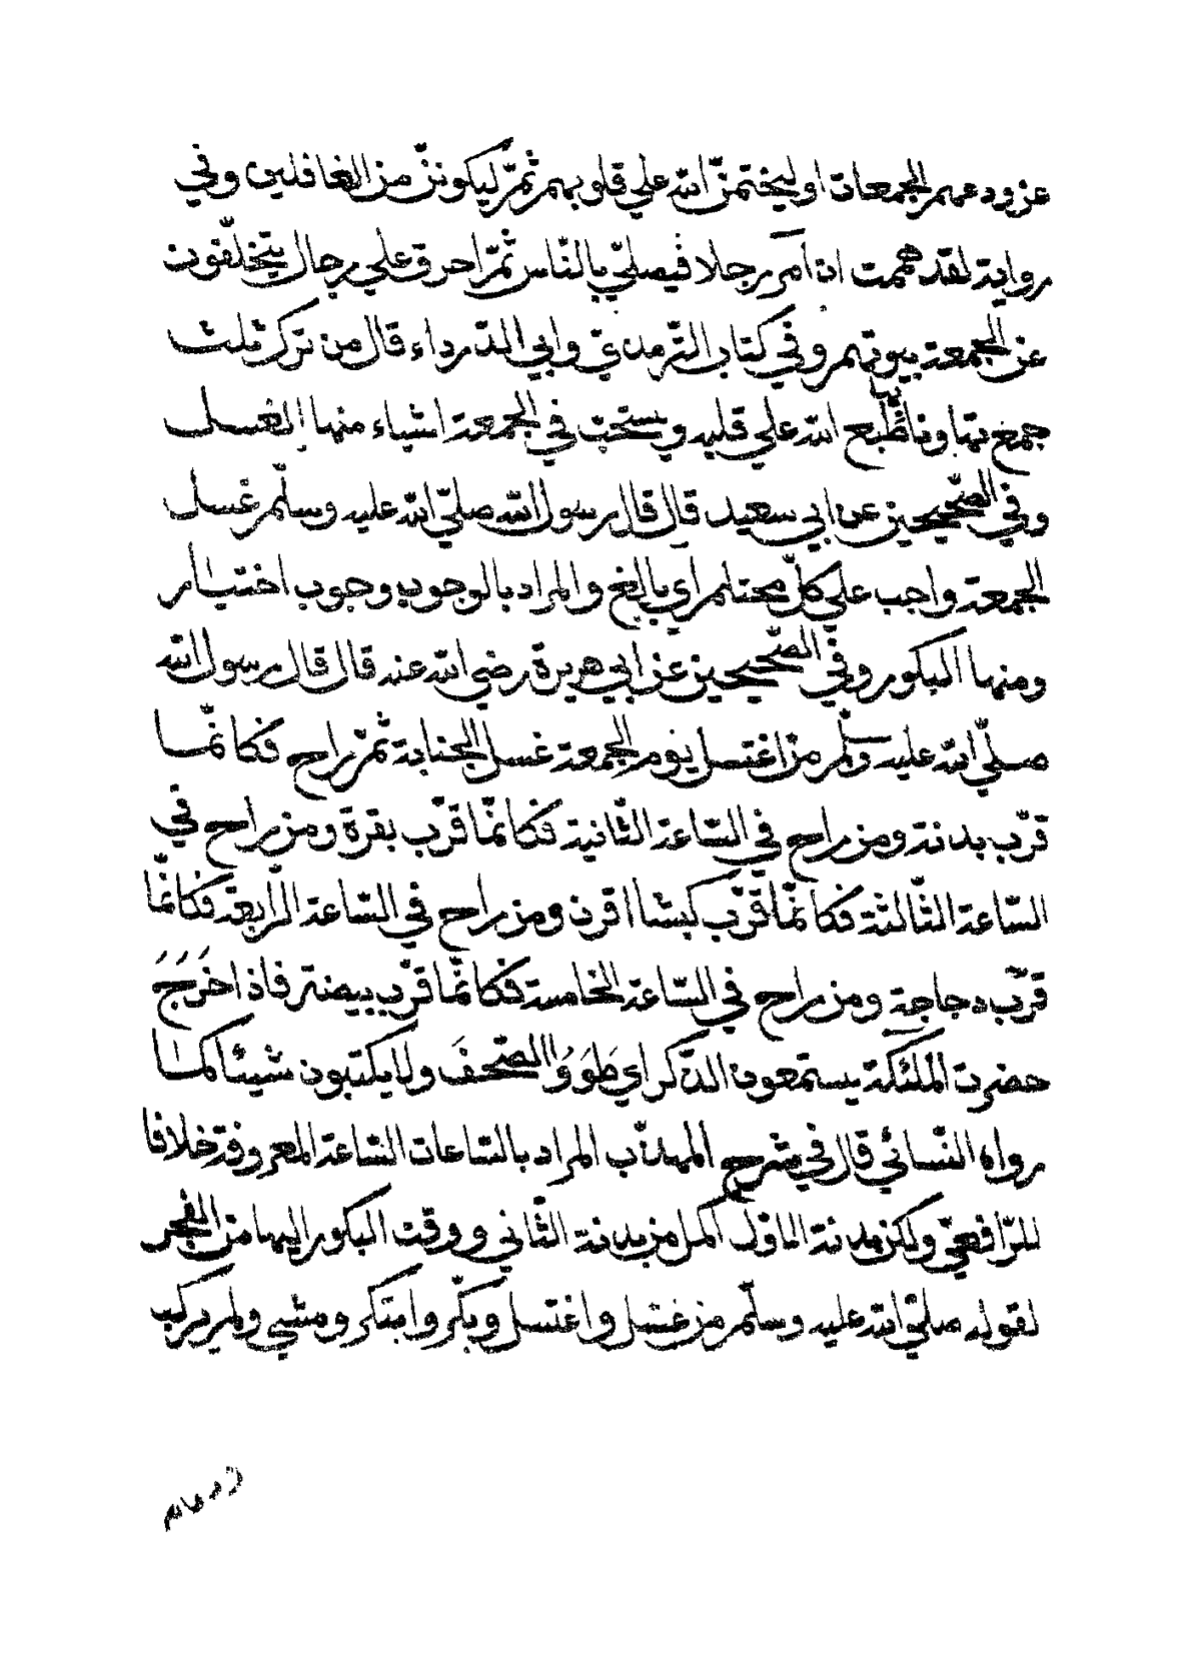 عن ودعهم الجمعات او ليختمنّ الله علي قلوبهم ثمّ ليكوننّ من الغافلين وفي
رواية لقد هممت ان آمر رجلا فيصلّي بالنّاس ثمّ احرق علي رجال يتخلّفون
عن الجمعة بيوتهم وفي كتاب الترمذيّ وابي الدّرداء قال من ترك ثلث
جمع تهاونا بها طبع الله علي قلبه ويستحبّ في الجمعة اشياء منها الغسل
وفي الصّحيحين عن ابي سعيد قال قال رسول الله صلّي الله عليه وسلّم غسل
الجمعة واجب علي كلّ محتلم اي بالغ والمراد بالوجوب وجوب اختيار
ومنها البكور وفي الصّحيحين عن ابي هريرة رضي الله عنه قال قال رسول الله
صلّي الله عليه وسلّم من اغتسل يوم الجمعة غسل الجنابة ثمّ راح فكانّما
قرّب بدنة ومن راح في السّاعة الثّانية فكانّما قرّب بقرة ومن راح في
السّاعة الثّالثة فكانّما قرّب كبشا اقرن ومن راح في السّاعة الرّابعة فكانّما
قرّب دجاجة ومن راح في السّاعة الخامسة فكانّما قرّب بيضة فاذا خَرَجَ
حضرت الملٓئكة يستمعون الذّكر اي طَوَوُا الصّحفَ ولا يكتبون شيئا كما
رواه النّسائي قال في شرح المهذّب المراد بالسّاعات السّاعة المعروفة خلافا
للرّافعيّ ولكن بدنة الاوّل اكمل من بدنة الثّاني ووقت البكور اليها من الفجر
لقوله صلّي الله عليه وسلّم من غسّل واغتسل وبكّر وابتكر ومشي ولم يركب